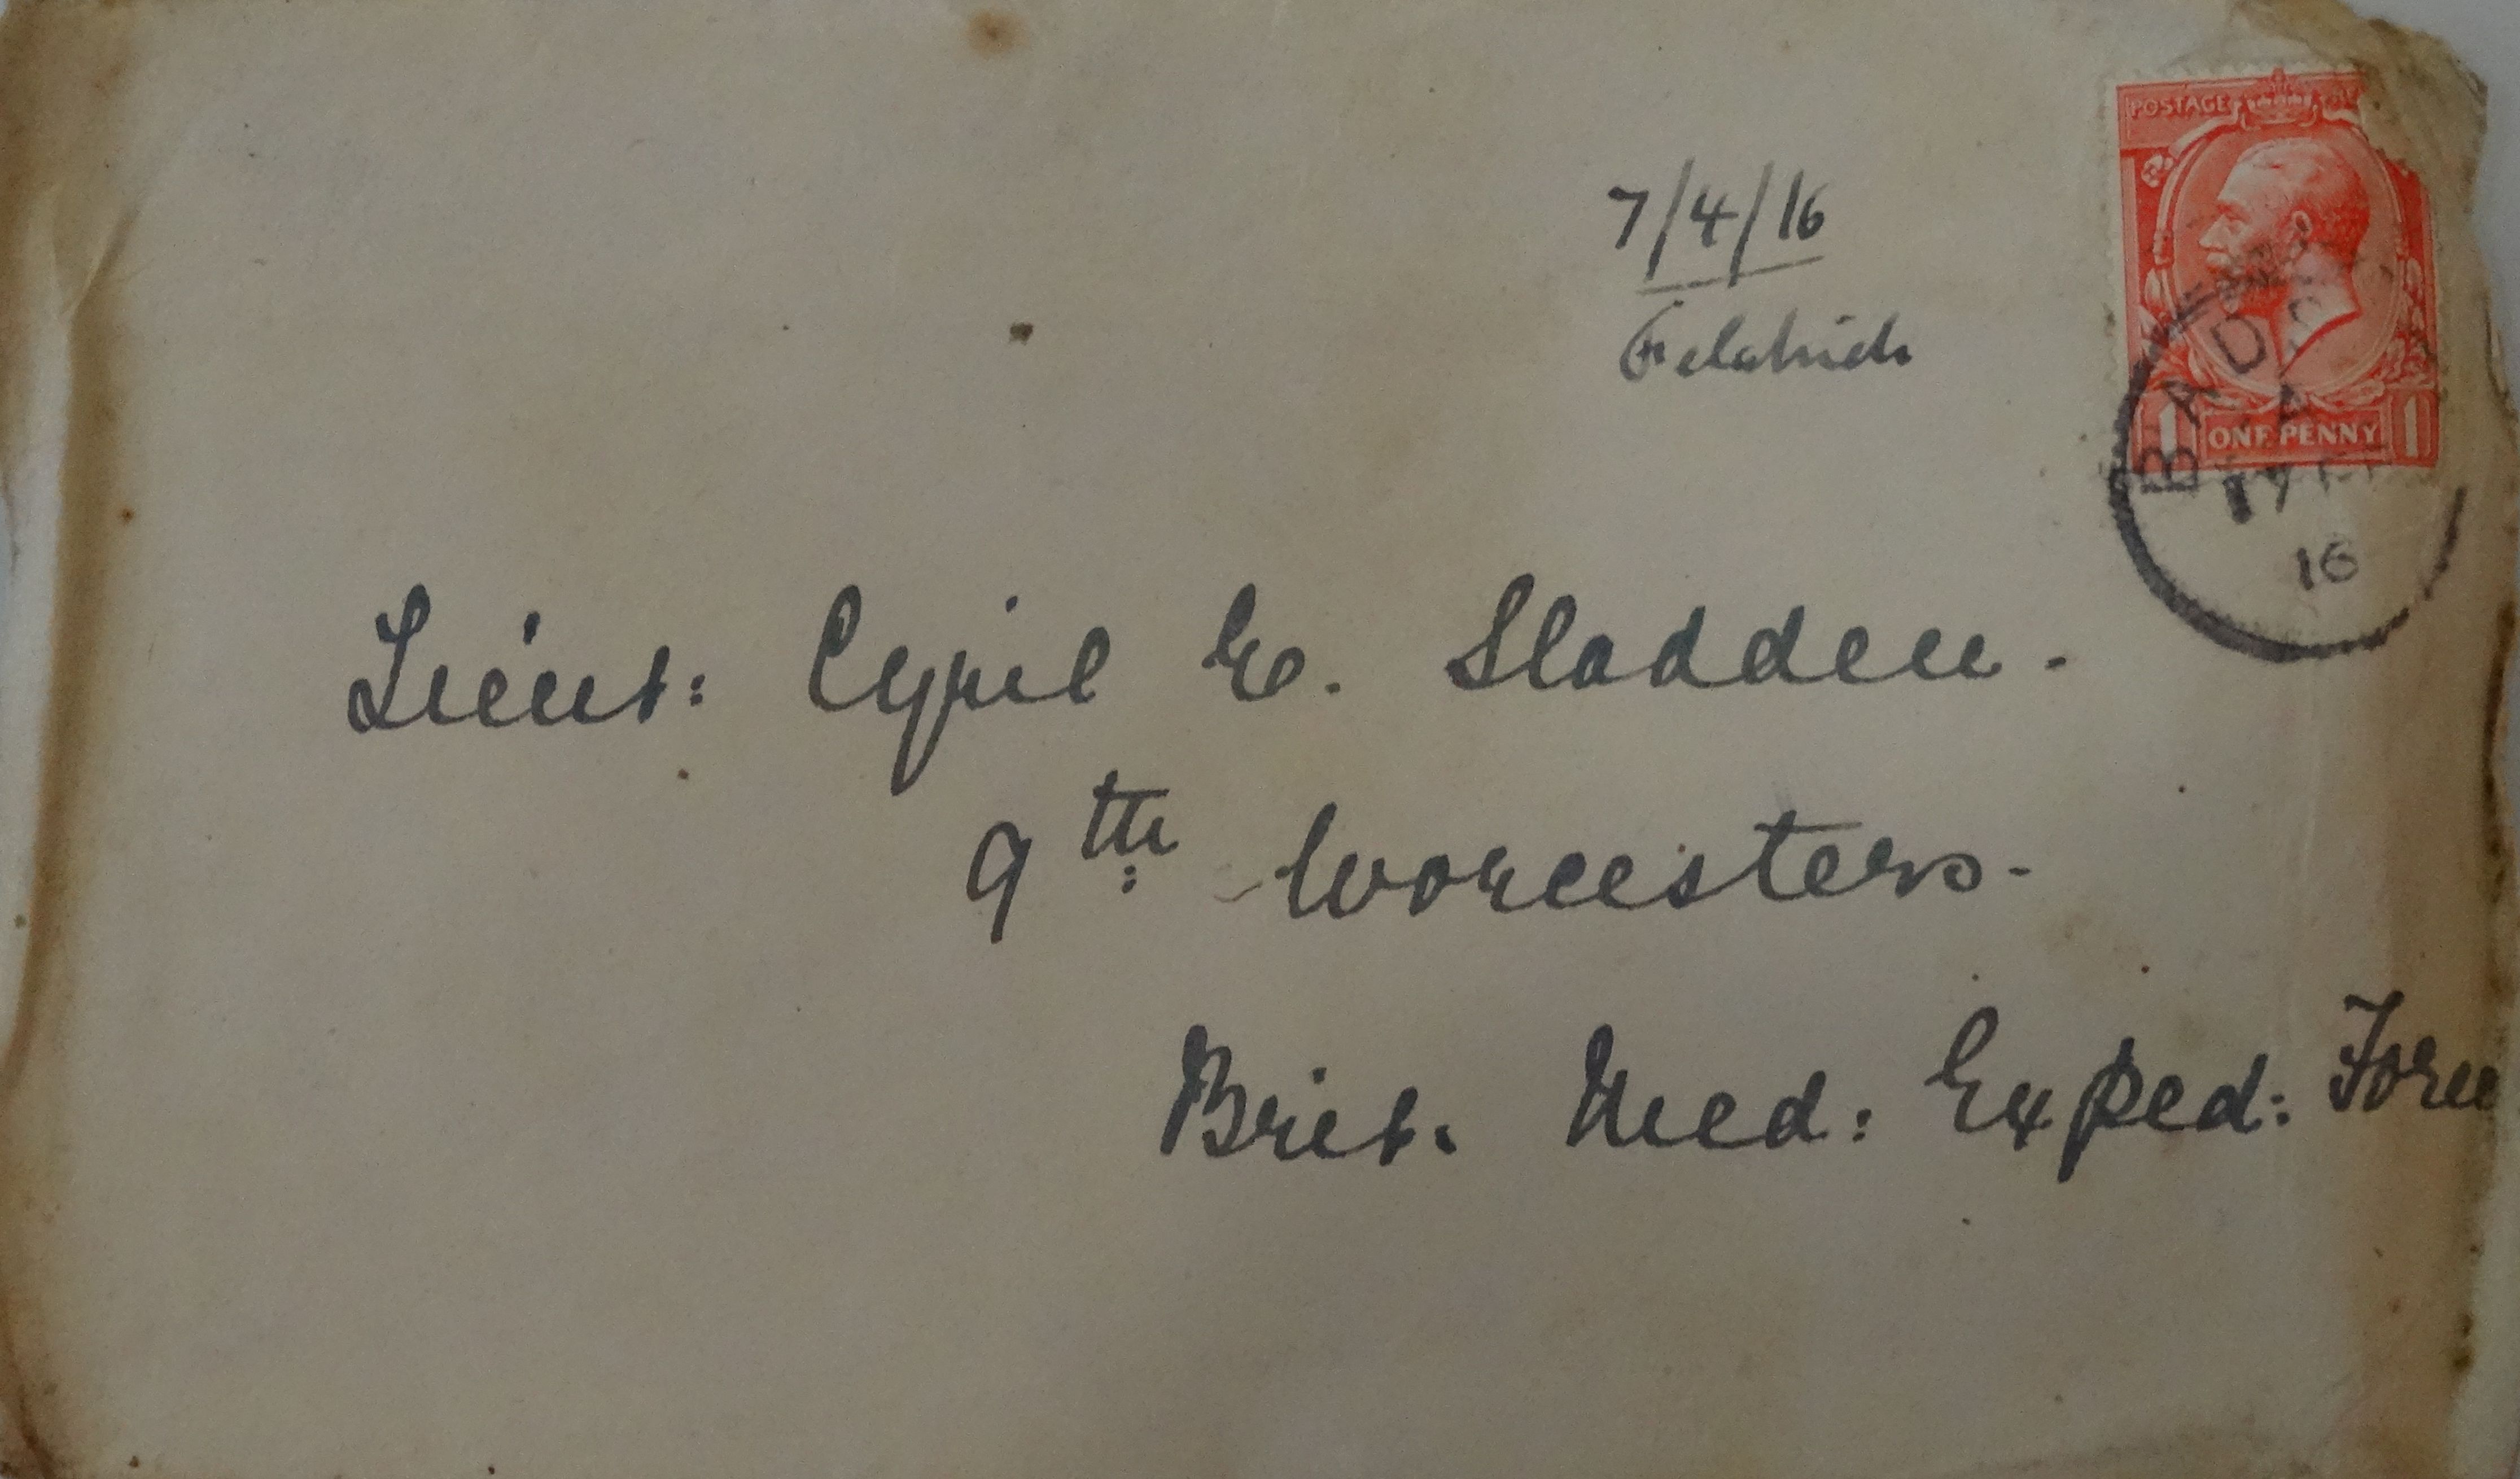 7/4/16
POSTAGE
ONE PENNY
1 1
BADS
16
Lieut: Cyril E. Sladden.
9th: Worcesters.
Brit. Med: Exped: Force